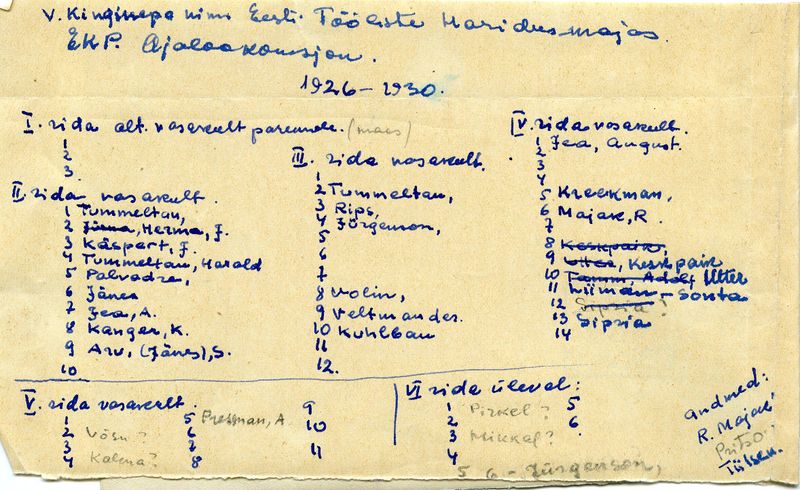 V. Kingissepa nimi Eesti Tööliste Haridusmajas.
EKP. Ajalookomisjon.
1926-1930.
I. rida alt. vasakult paremale. (maas)
1
2
3
II. rida vasakult.
1 Tummeltau,
2 Herma, J.
3 Käspert, J.
4 Tummeltau, Harald
5 Palvadre,
6 Jänes
7 Jea, A.
8 Kanger, K.
9 Arv, (Jänes), S.
10
III. rida vasakult.
1
2 Tummeltau,
3 Rips,
4 Jörgenson,
5
6
7
8 Volin,
9 Veltmander.
10 Kuhlbau
11
12.
IV. rida vasakult.
1 Jea, August.
2
3
4
5 Kreekman,
6 Majak, R.
7
8 Keskpaik,
9 Utter, Keskpaik
10 Tamm, Adolf, Utter
11 Liiman - Sonta
12 Sipria?
13 Sipria
14
V. rida vasakult.
1
2 Võsu?
3
4 Kalma?
5 Pressman, A
6
7
8
9
10
11
VI rida üleval:
1 Pirkel?
2
3 Mikkal?
4
5
6
5 6 - Jürgenson,
andmed:
R. Majak
Pritso
Tölsen.